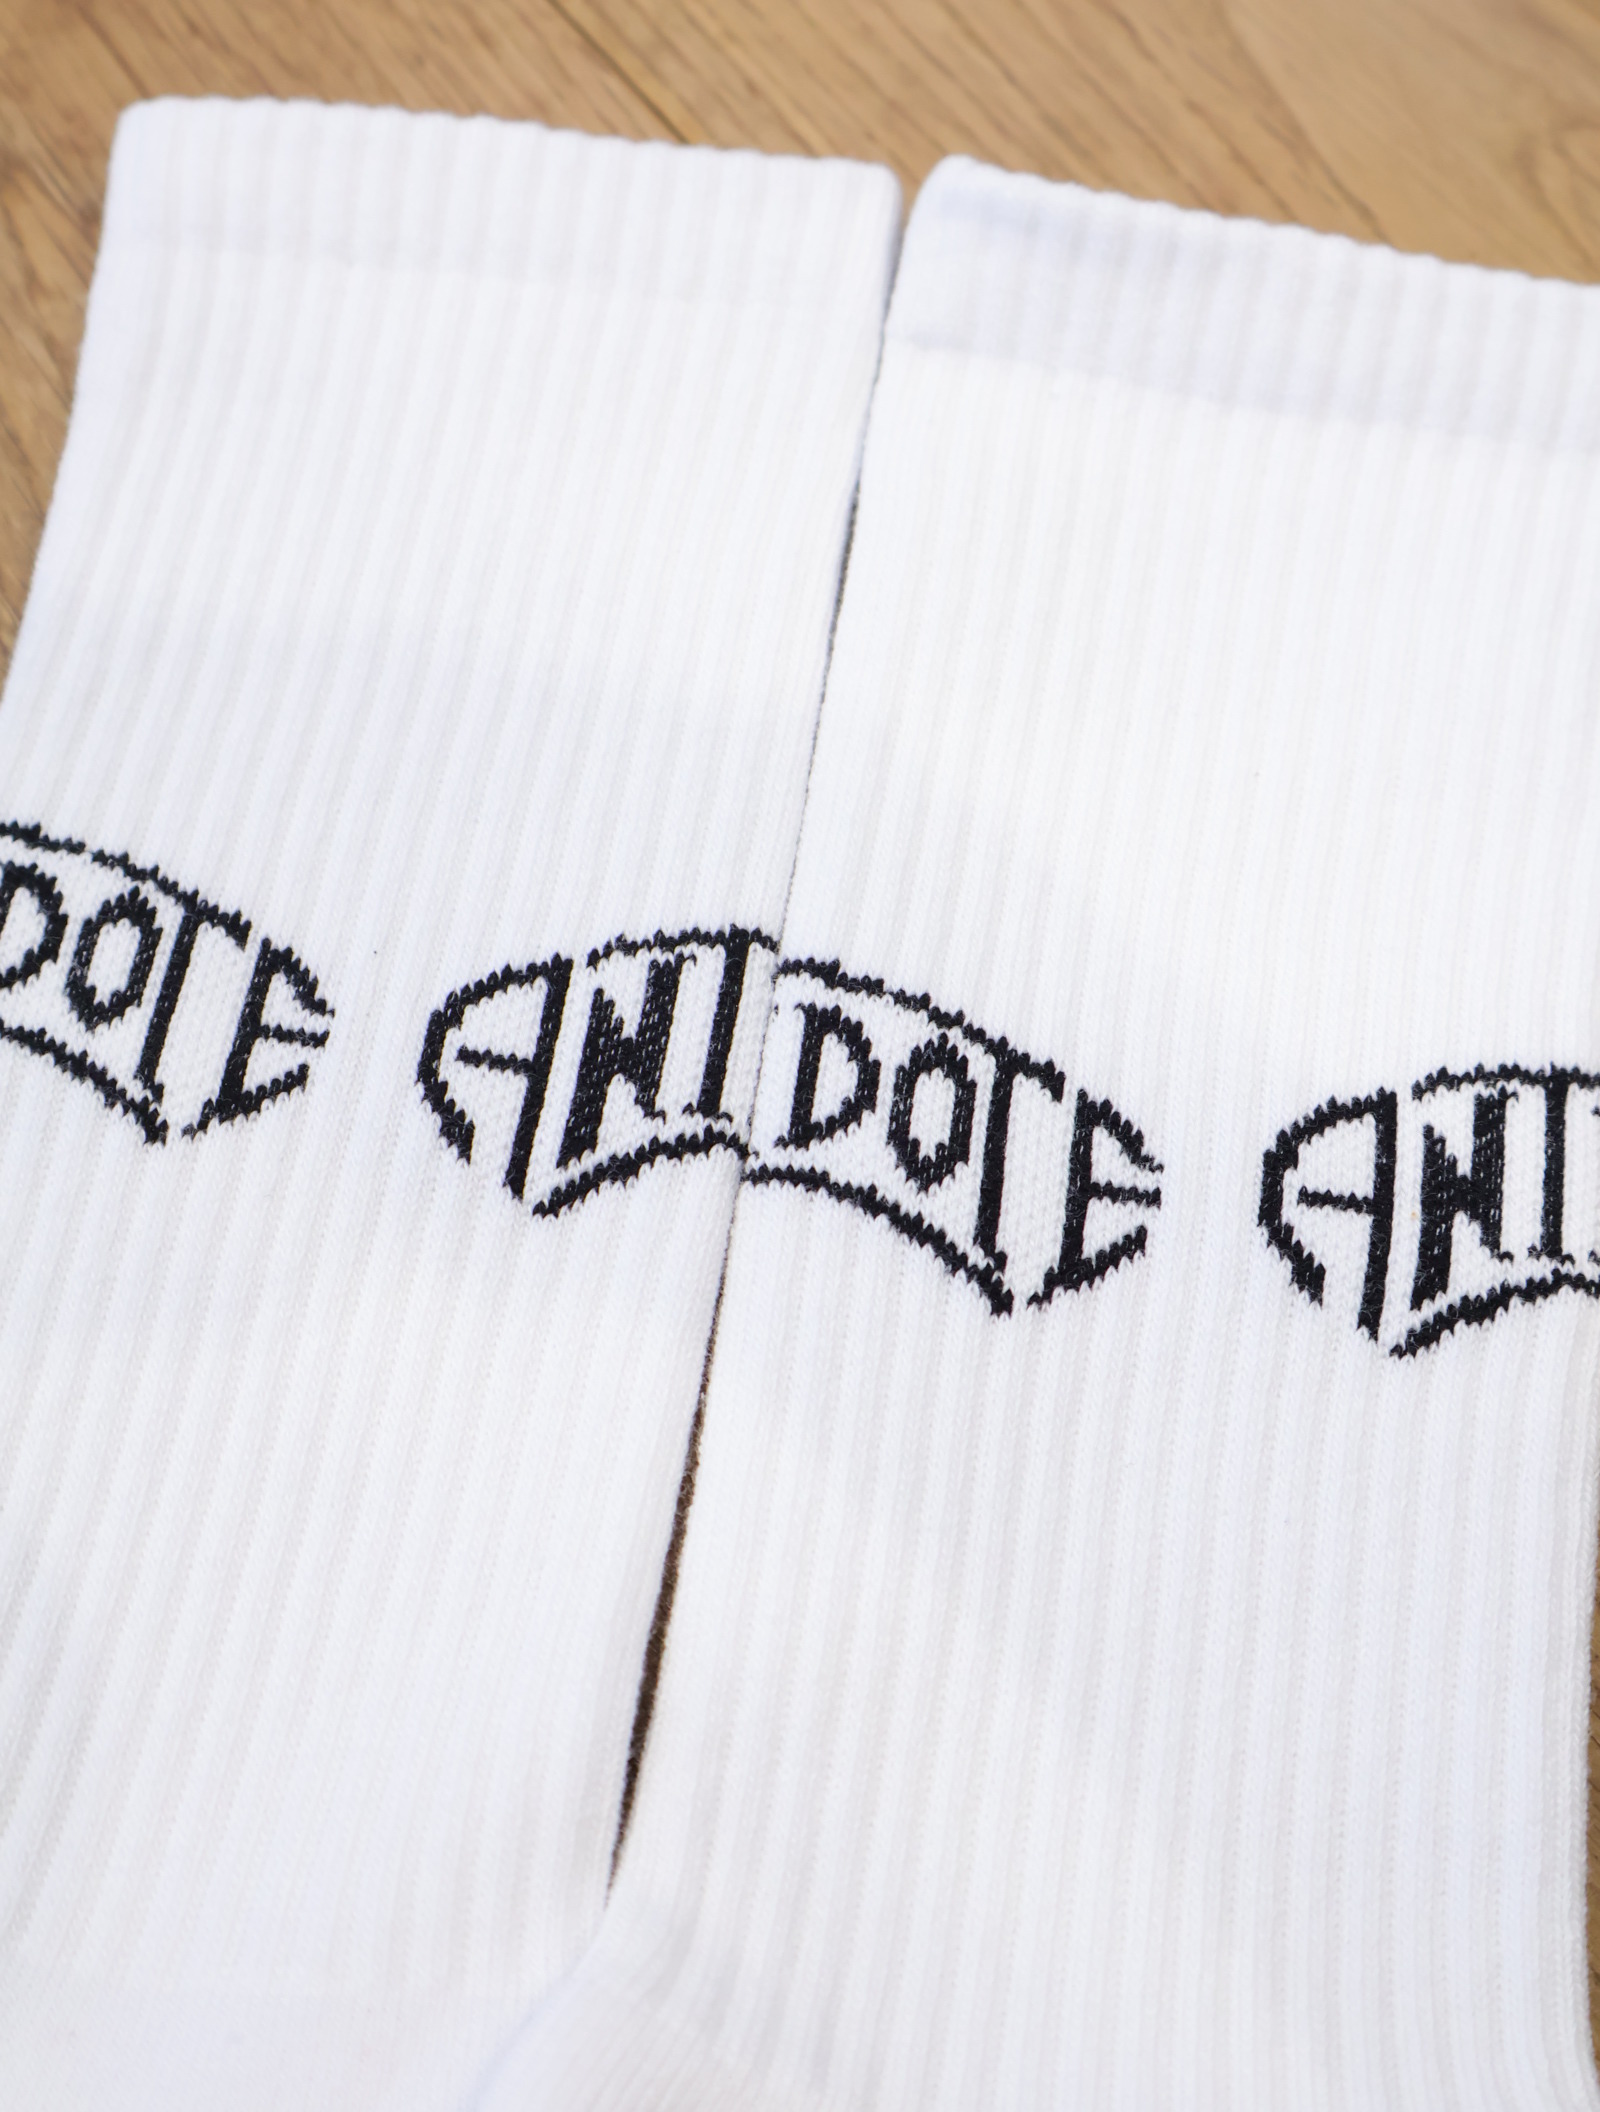 DOTE ANTIDOTE ANTI